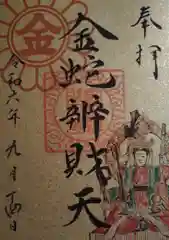 奉拝
金蛇辨財天
金
令和六年九月
日